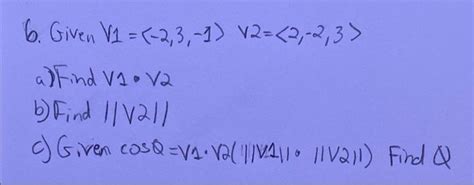 6. Given V1 = <-2, 3, -1> V2 = <2, -2, 3>
a) Find V1 • V2
b) Find ||V2||
c) Given cosQ = V1 • V2(||V1|| • ||V2||) Find Q